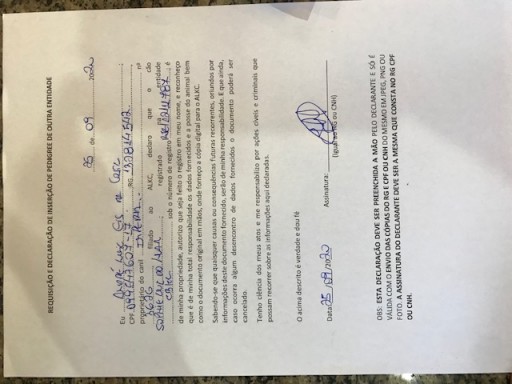 REQUISIÇÃO E DECLARAÇÃO DE INSERÇÃO DE PEDIGREE DE OUTRA ENTIDADE
25 de 09 2020
Eu
CPF RG
proprietário do canil nº
filiado ao ALKC, declaro que o cão
registrado na entidade
sob o número de registro é
de minha propriedade, autorizo que seja feito o registro em meu nome, e reconheço
que é de minha total responsabilidade os dados fornecidos e a posse do animal bem
como o documento original em mãos, onde forneço a cópia digital para o ALKC.
Sabendo-se que quaisquer causas ou consequências futuras recorrentes, oriundos por
informações deste documento fornecido, serão de minha responsabilidade. E que ainda,
caso ocorra algum desencontro de dados fornecidos o documento poderá ser
cancelado.
Tenho ciência dos meus atos e me responsabilizo por ações cíveis e criminais que
possam recorrer sobre as informações aqui declaradas.
O acima descrito é verdade e dou fé
Data: 25/09/2020 Assinatura:
(igual ao RG ou CNH)
OBS: ESTA DECLARAÇÃO DEVE SER PREENCHIDA A MÃO PELO DECLARANTE E SÓ É
VÁLIDA COM O ENVIO DAS CÓPIAS DO RG E CPF OU CNH DO MESMO EM JPEG, PNG OU
FOTO. A ASSINATURA DO DECLARANTE DEVE SER A MESMA QUE CONSTA NO RG CPF
OU CNH.